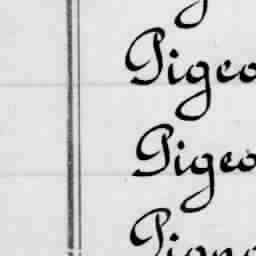 Pigeo
Pigeo